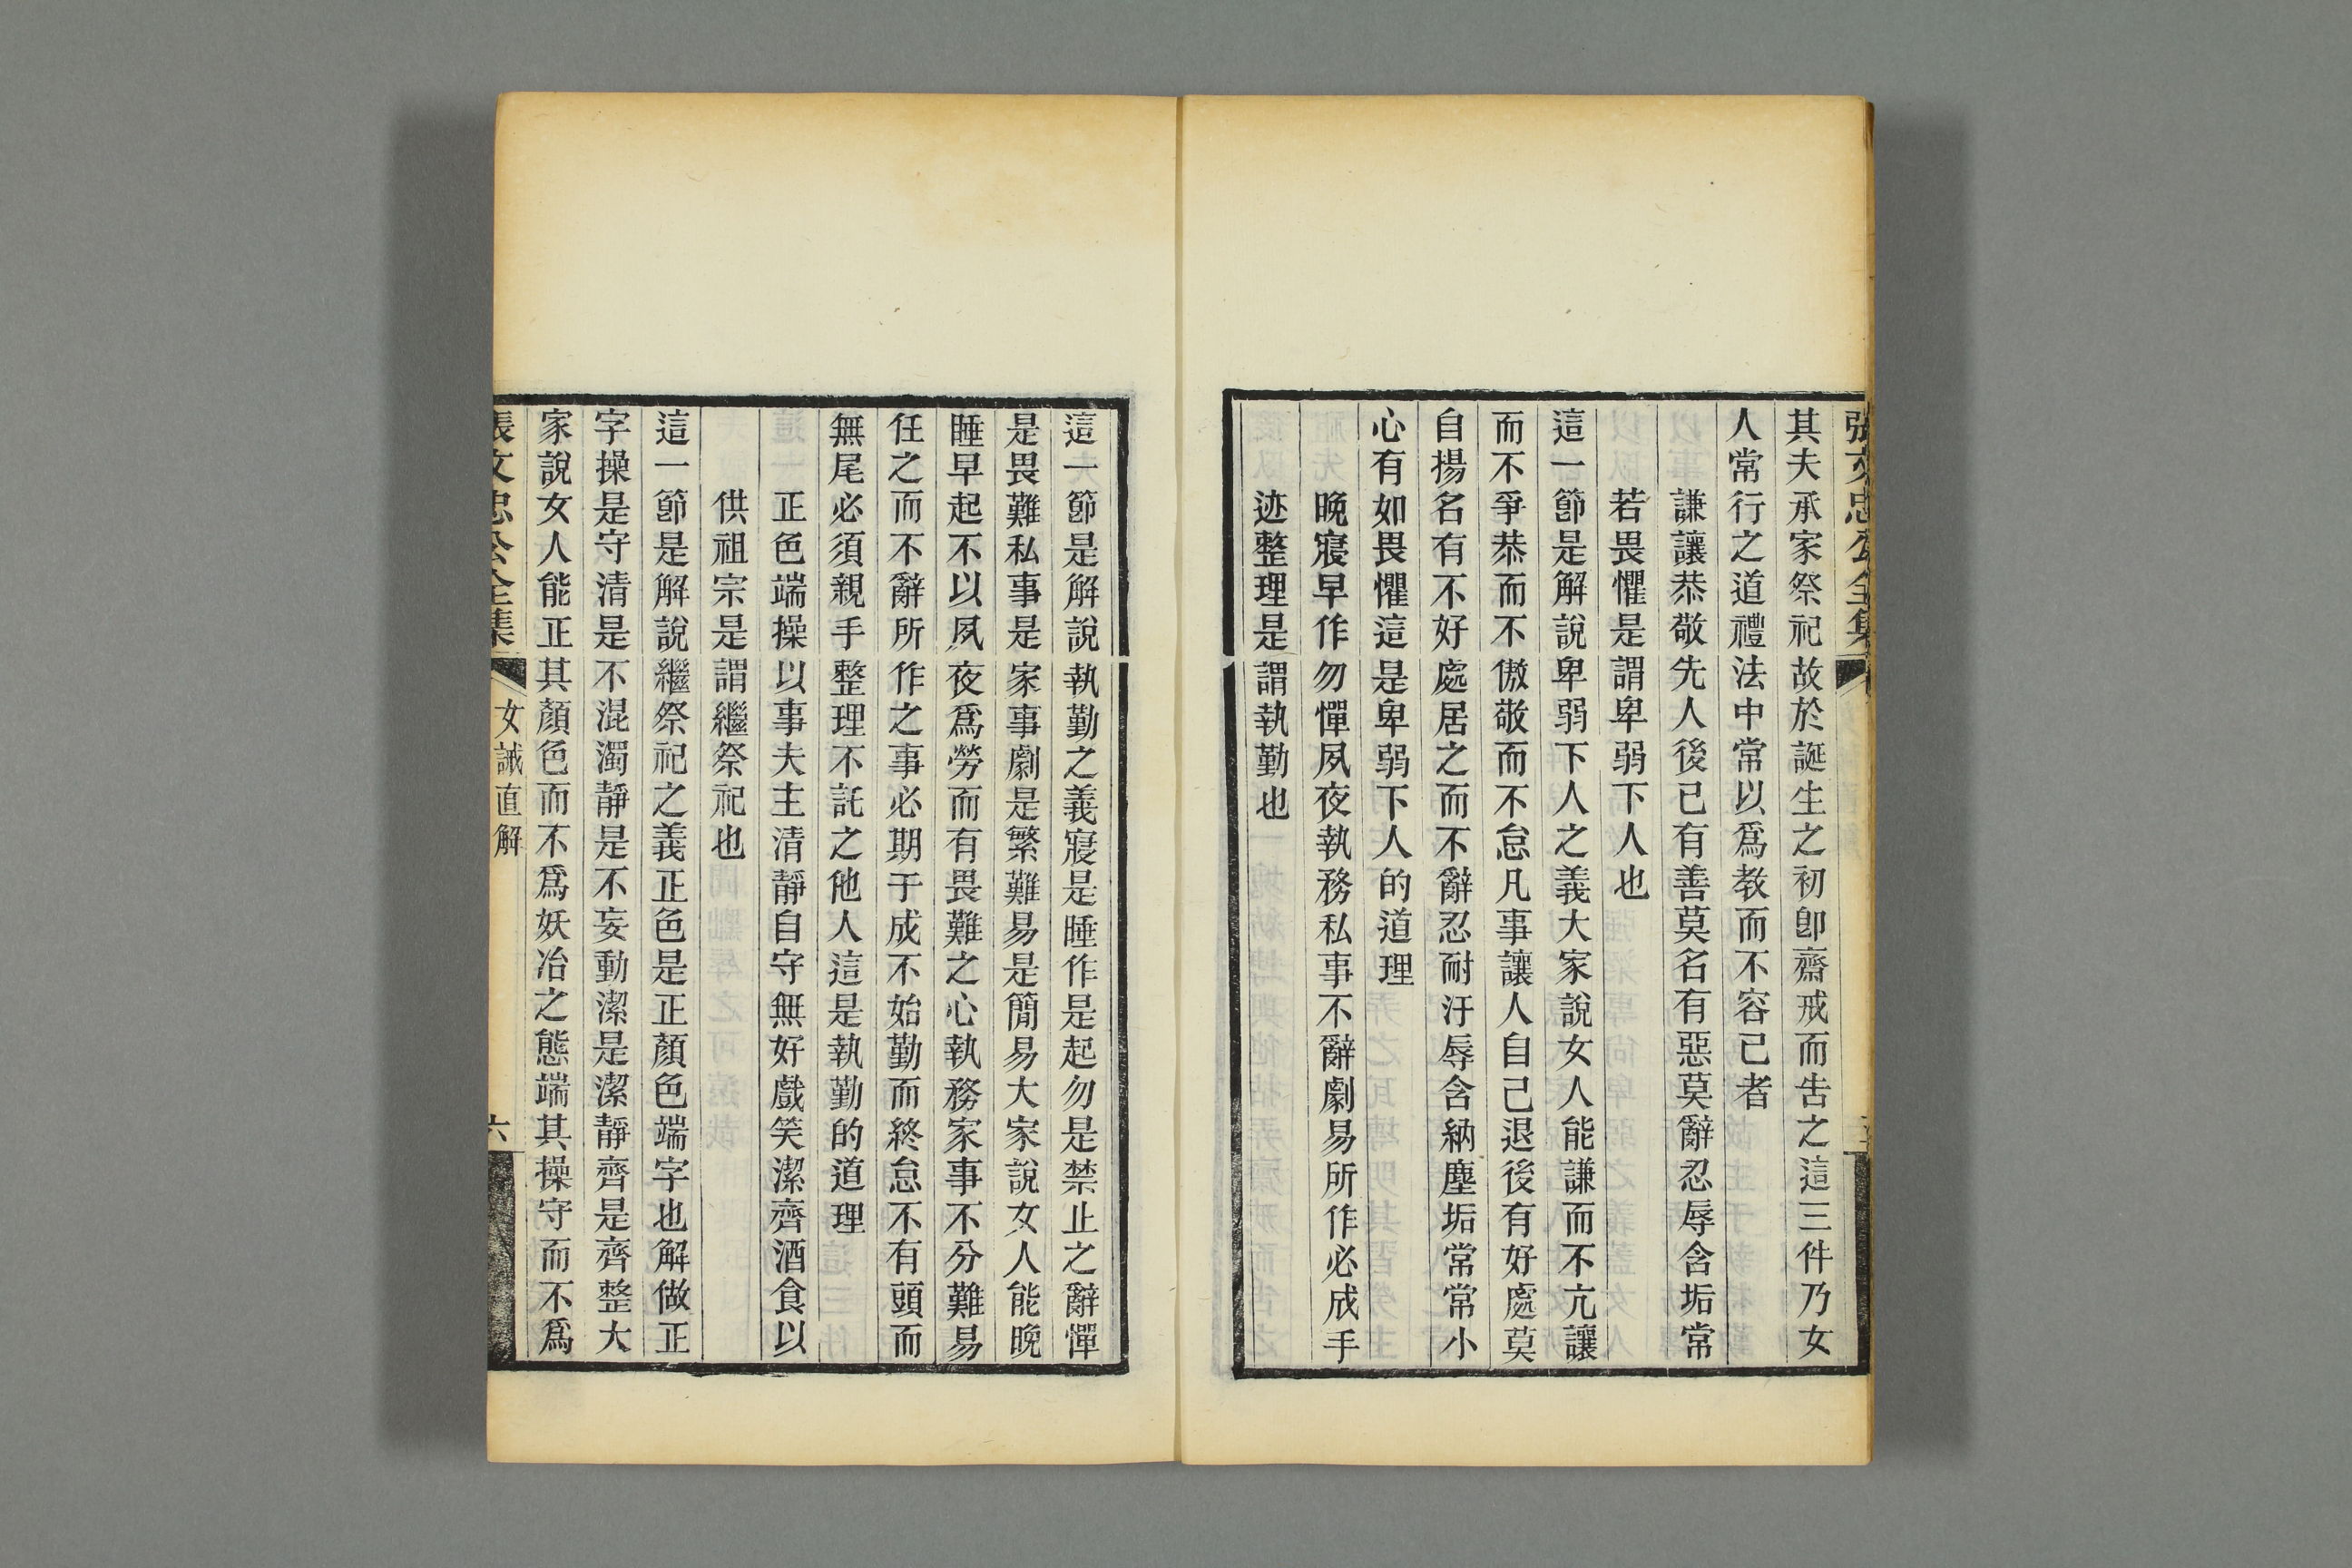 張文忠公全集
其夫承家祭祀故於誕生之初卽齋戒而吿之這三件乃女
人常行之道禮法中常以爲教而不容已者
謙讓恭敬先人後已有善莫名有惡莫辭忍辱含垢常
若畏懼是謂卑弱下人也
這一節是解說卑弱下人之義大家說女人能謙而不亢讓
而不爭恭而不傲敬而不怠凡事讓人自己退後有好處莫
自揚名有不好處居之而不辭忍耐汙辱含納塵垢常常小
心有如畏懼這是卑弱下人的道理
晚寢早作勿憚夙夜執務私事不辭劇易所作必成手
迹整理是謂執勤也
這一節是解說執勤之義寢是睡作是起勿是禁止之辭憚
是畏難私事是家事劇是繁難易是簡易大家說女人能晚
睡早起不以夙夜爲勞而有畏難之心執務家事不分難易
任之而不辭所作之事必期于成不始勤而終怠不有頭而
無尾必須親手整理不託之他人這是執勤的道理
正色端操以事夫主清靜自守無好戲笑潔齊酒食以
供祖宗是謂繼祭祀也
這一節是解說繼祭祀之義正色是正顏色端字也解做正
字操是守清是不混濁靜是不妄動潔是潔靜齊是齊整大
家說女人能正其顏色而不爲妖冶之態端其操守而不爲
張文忠公全集
女誡直解
六